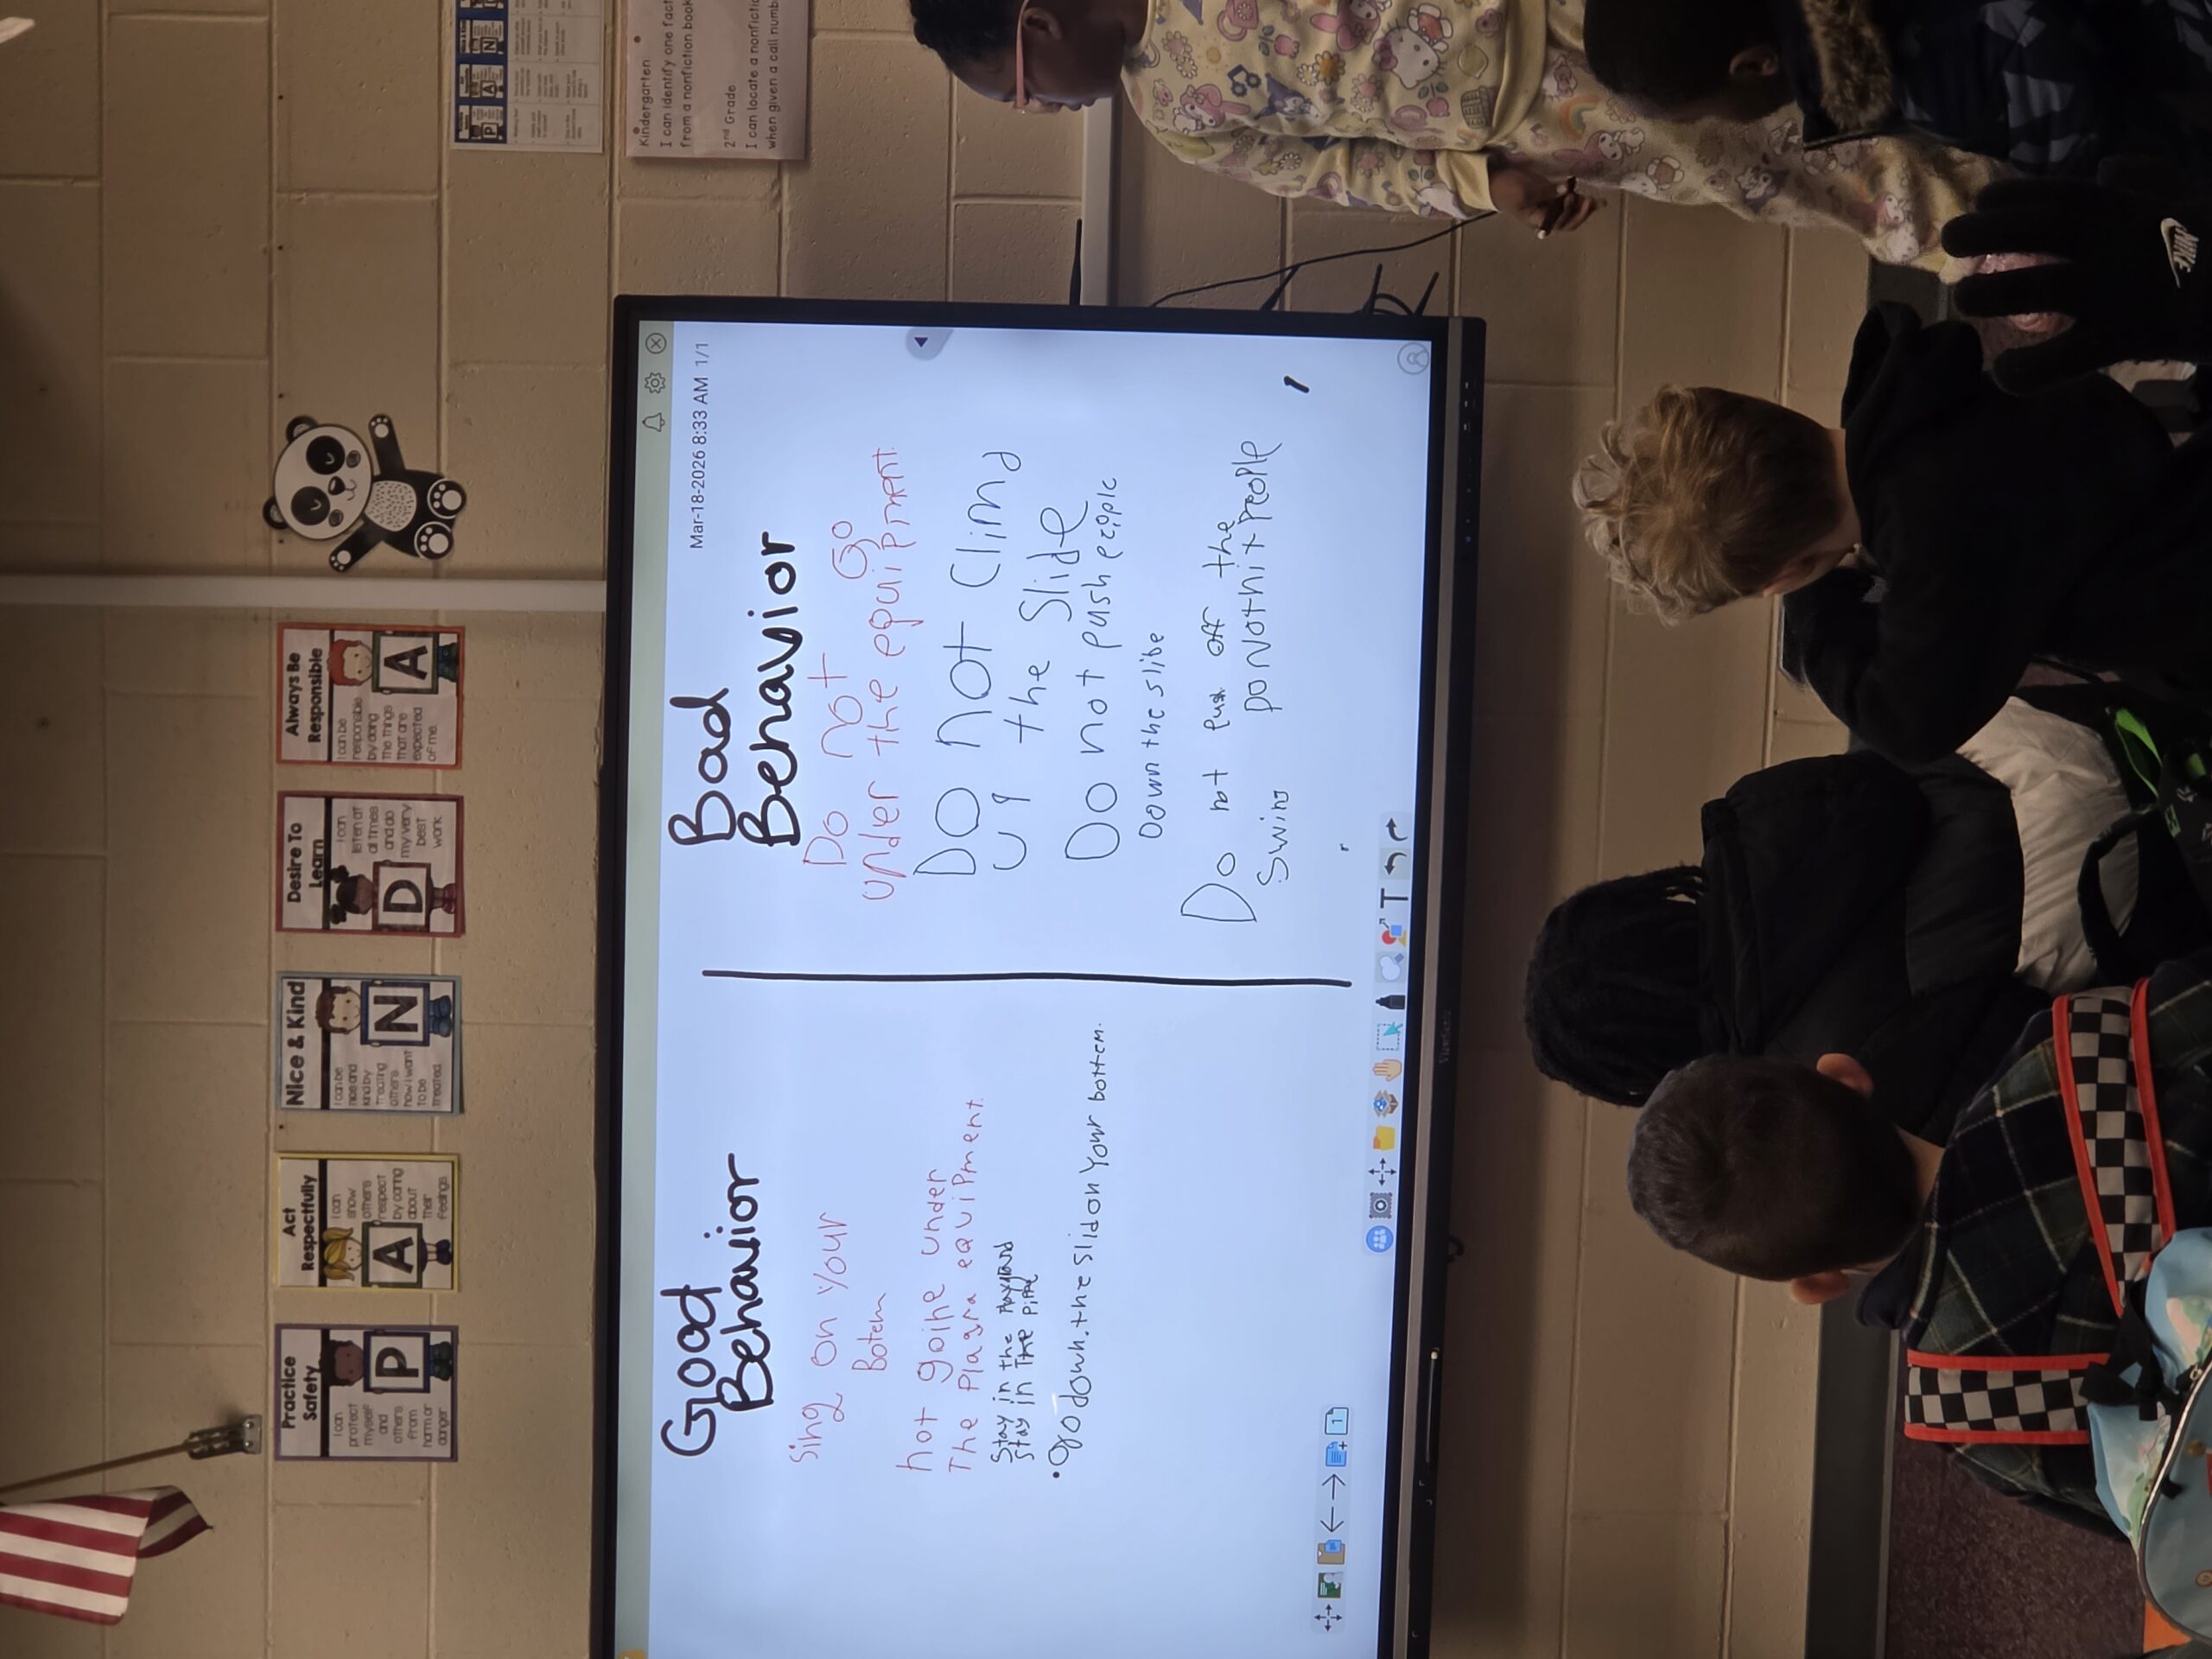 Kindergarten
I can identify one fact
from a nonfiction book
2nd Grade
I can locate a nonfiction
when given a call numb
Practice
Safety
I can
protect
myself
and
others
from
harm or
danger
P
Act
Respectfully
I can
show
others
respect
by caring
about
their
feelings
A
Nice & Kind
I can be
nice and
kind by
treating
others
how I want
to be
treated
N
Desire To
Learn
I can
listen at
all times
and do
my very
best
work
D
Always Be
Responsible
I can be
responsible
by doing
the things
that are
expected
of me.
A
Mar-18-2026 8:33 AM 1/1
Good
Behavior
sing on your
Botem
not goine under
The Plagra equiPment.
Stay in the Playground
Stay in The
• go down.the slid on Your bottem.
Bad
Behavior
Do not Go
under the equipment.
Do not Clim
up the Slide
Do not push people
Down the slibe
Do not Push off the
Swing po Not hit people
T
1
ViewSonic
NIKE